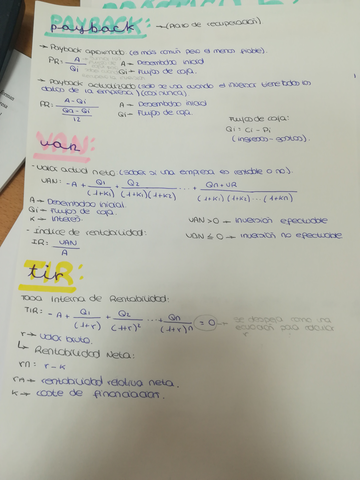 PAYBACK:
payback → (Plazo de recuperación).
→ Payback aproximado (es más común pero el menos fiable).
PR: A / Q1 A → Desembolso inicial
Qi → Flujos de caja.
→ Payback actualizado
datos de la empresa) (casi nunca).
PR: A - Qi / Qn - Qi / 12 A → Desembolso inicial
Qi → Flujos de caja.
Flujos de caja:
Qi = Ci - Pi
(ingresos - gastos).
VAN:
van
→ Valor actual Neto (saber si una empresa es rentable o no).
VAN: -A + Q1 / (1+K1) + Q2 / (1+K1)(1+K2) ... + Qn + VR / (1+K1)(1+K2)...(1+Kn)
A → Desembolso inicial.
Qi → Flujos de caja.
K → Interés.
VAN > 0 → inversión efectuable
→ Índice de rentabilidad:
VAN ≤ 0 → inversión no efectuable
IR: VAN / A
TIR:
tir
Tasa Interna de Rentabilidad:
TIR: -A + Q1 / (1+r) + Q2 / (1+r)² ... + Qn / (1+r)ⁿ = 0 → se despeja como una
ecuación para calcular
r
r → valor bruto.
↳ Rentabilidad Neta:
rn: r - K
rn → rentabilidad relativa neta.
K → coste de financiación.